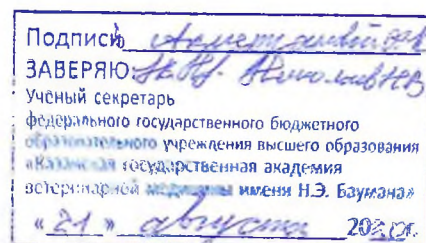 Подпись
ЗАВЕРЯЮ
Учёный секретарь
федерального государственного бюджетного
образовательного учреждения высшего образования
«Казанская государственная академия
ветеринарной медицины имени Н.Э. Баумана»
« 21 » августа 202 г.